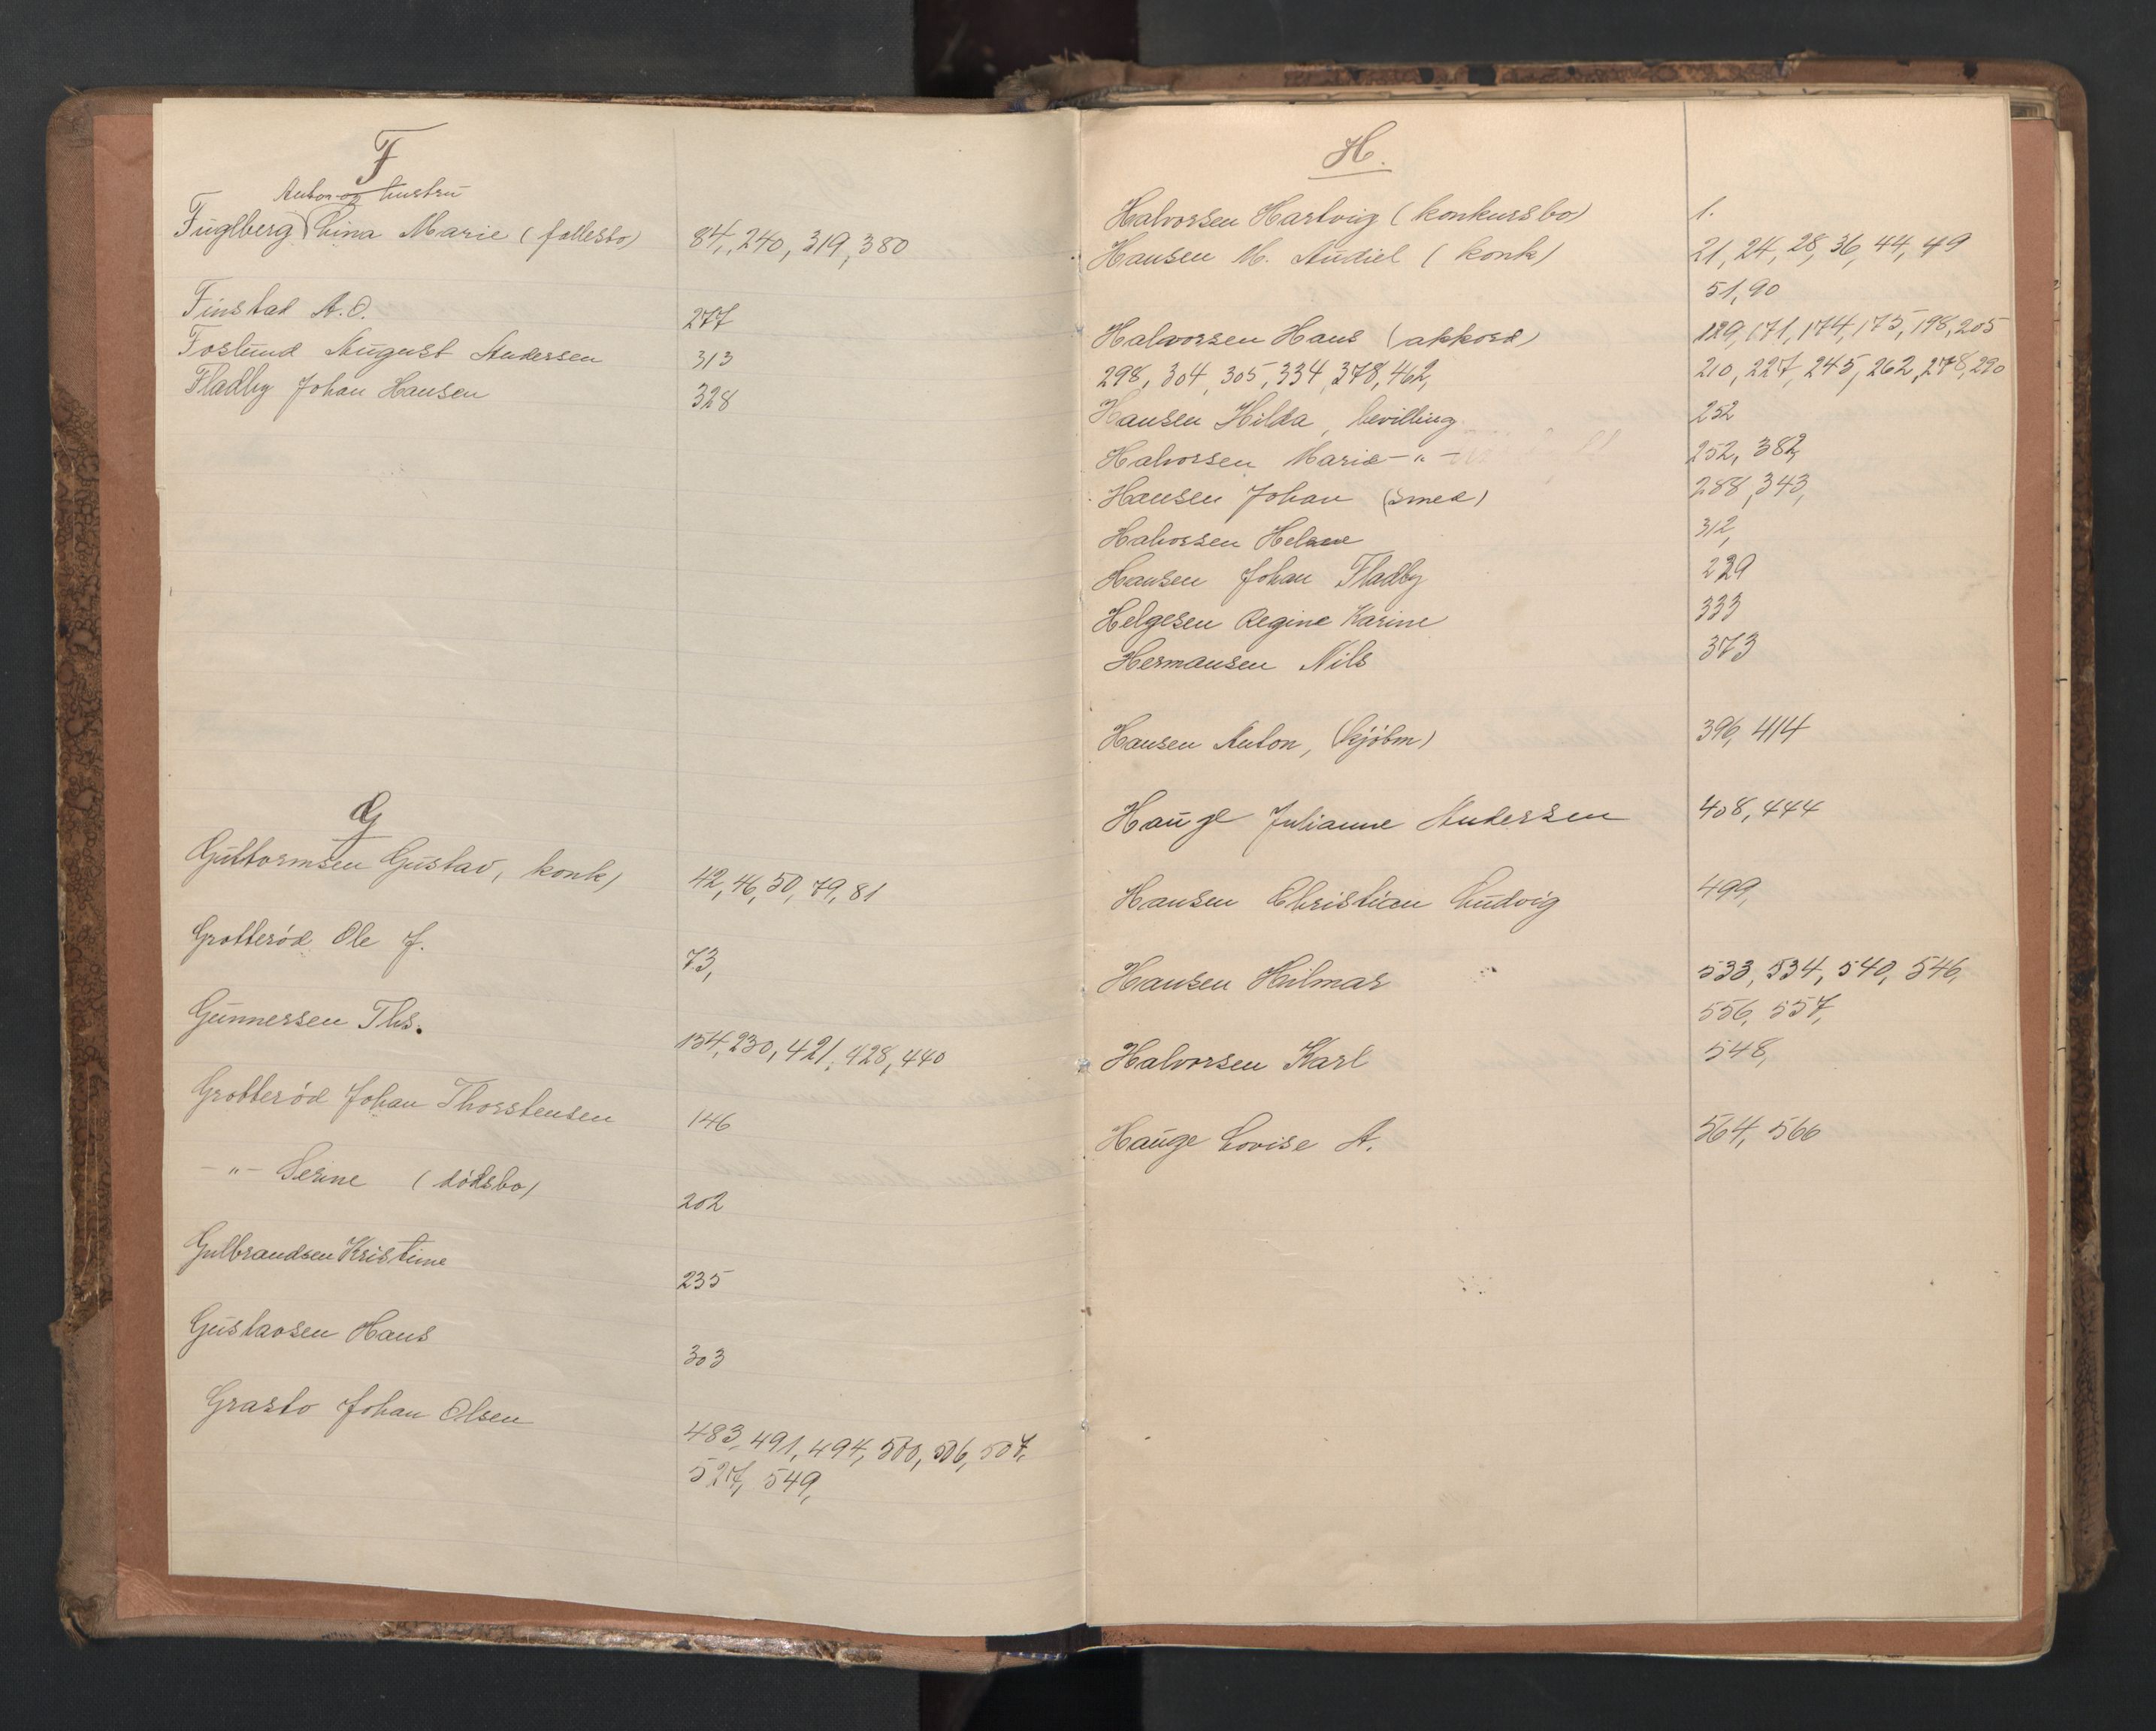 F
Anton og hustru
Fuglberg Lina Marie (fællesbo) 84, 240, 319, 380
Finstad A. O. 277
Foslund August Andersen 313
Fladby Johan Hansen 328
G
Guttormsen Gustav, konk) 42, 46, 50, 79, 81
Grotterød Ole J. 73,
Gunnersen Ths. 154, 230, 421, 428, 440
Grotterød Johan Thorstensen 146
-"- Serine (dødsbo) 202
Gulbrandsen Kristine 235
Gustavsen Hans 303
Grasto Johan Olsen 483, 491, 494, 500, 506, 507,
527, 549,
H.
Halvorsen Hartvig (konkursbo) 1.
Hansen M. Audiel (konk) 21, 24, 28, 36, 44, 49
51, 90
Halvorsen Hans (akkord) 129, 171, 174, 175, 198, 205
298, 304, 305, 334, 378, 462, 210, 227, 245, 262, 278, 290
Hansen Hilda, bevilling 252
Halvorsen Marie -"- 252, 382,
Hansen Johan (smed) 288, 343,
Halvorsen Helene 312,
Hansen Johan Fladby 229
Helgesen Regine Karine 333
Hermansen Nils 373
Hansen Anton, (kjøbm) 396, 414
Hauge Julianne Andersen 408, 444
Hansen Christian Ludvig 499,
Hansen Hilmar 533, 534, 540, 546,
556, 557,
Halvorsen Karl 548,
Hauge Lovise A. 564, 566